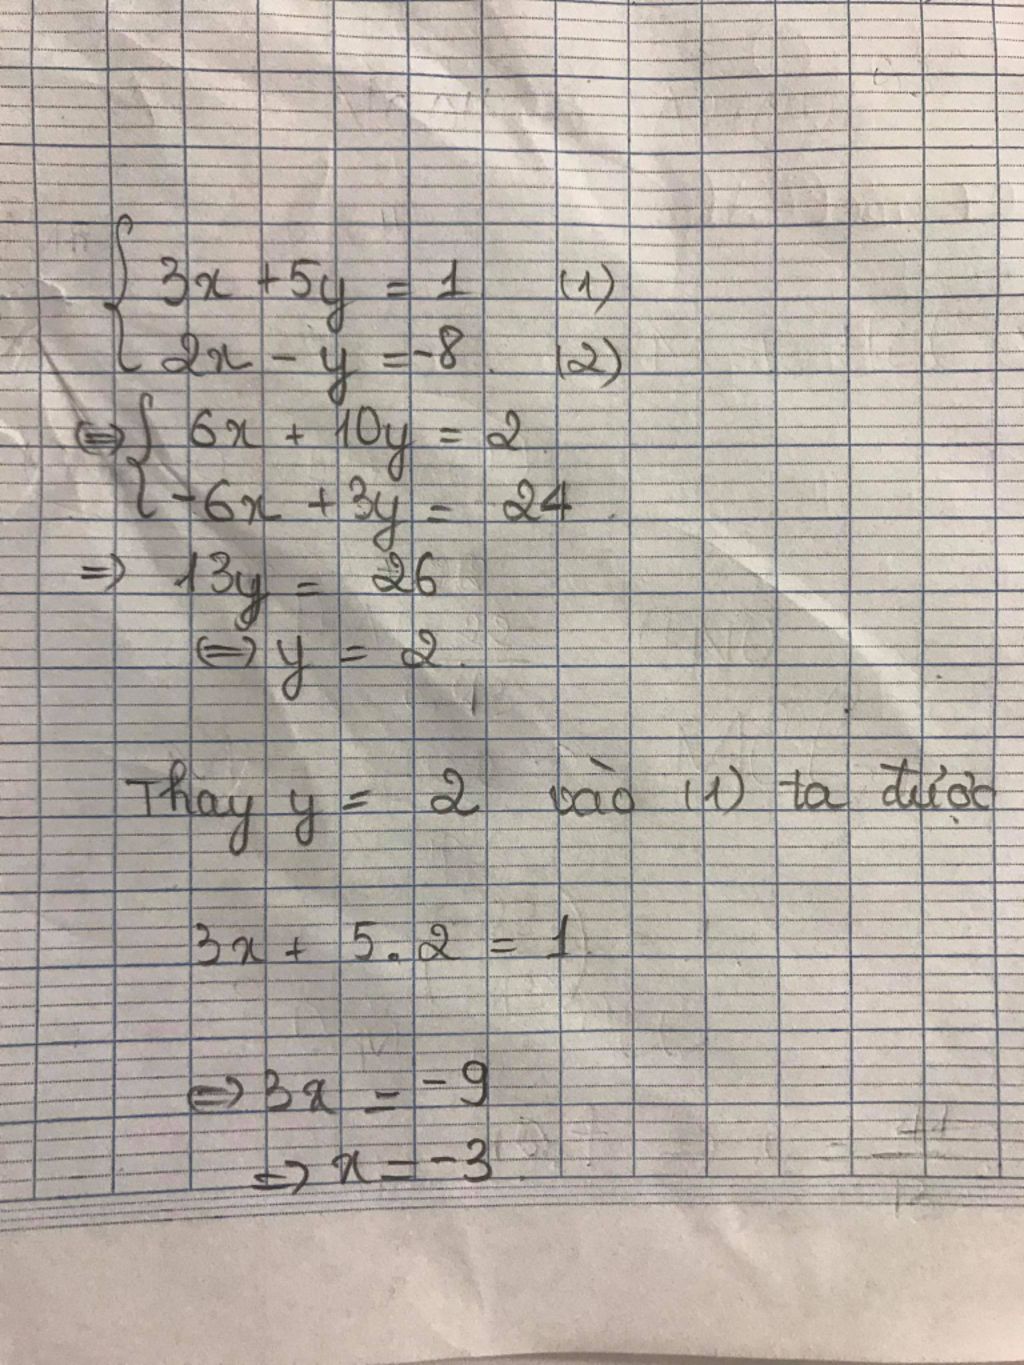 3x + 5y = 1 (1)
2x - y = -8. (2)
⇔ { 6x + 10y = 2
-6x + 3y = 24.
⇒ 13y = 26
⇔ y = 2.
Thay y = 2 vào (1) ta được
3x + 5.2 = 1
⇔ 3x = -9
⇒ x = -3